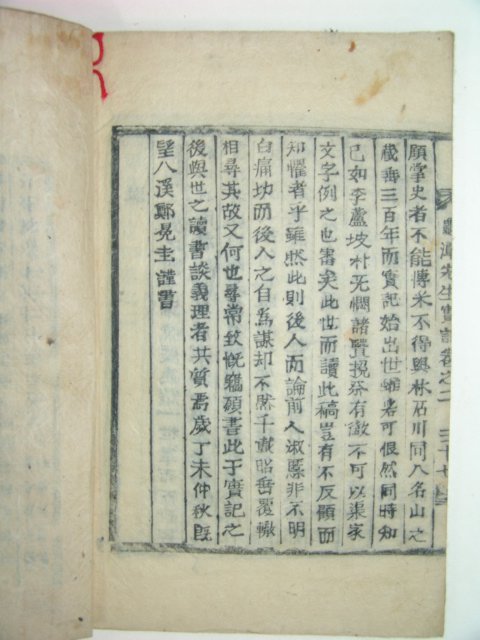 先生實記卷之二 三十七
願掌史者不能傳來不得與林石川同入名山之
藏壽三百年而實記始出世雖若可恨然同時知
己如李蘆坡朴无悶諸賢挽祭有徵不可以渠家
文字例之也審矣此世而讀此稿豈有不反顧而
知懼者乎雖然此則後人而論前人淑慝非不明
白痛快而後人之自爲謀却不然千載昭垂覆轍
相尋其故又何也尋常致慨臨顧書此于實記之
後與世之讀書談義理者共質焉歲丁未仲秋旣
望八溪鄭冕圭謹書